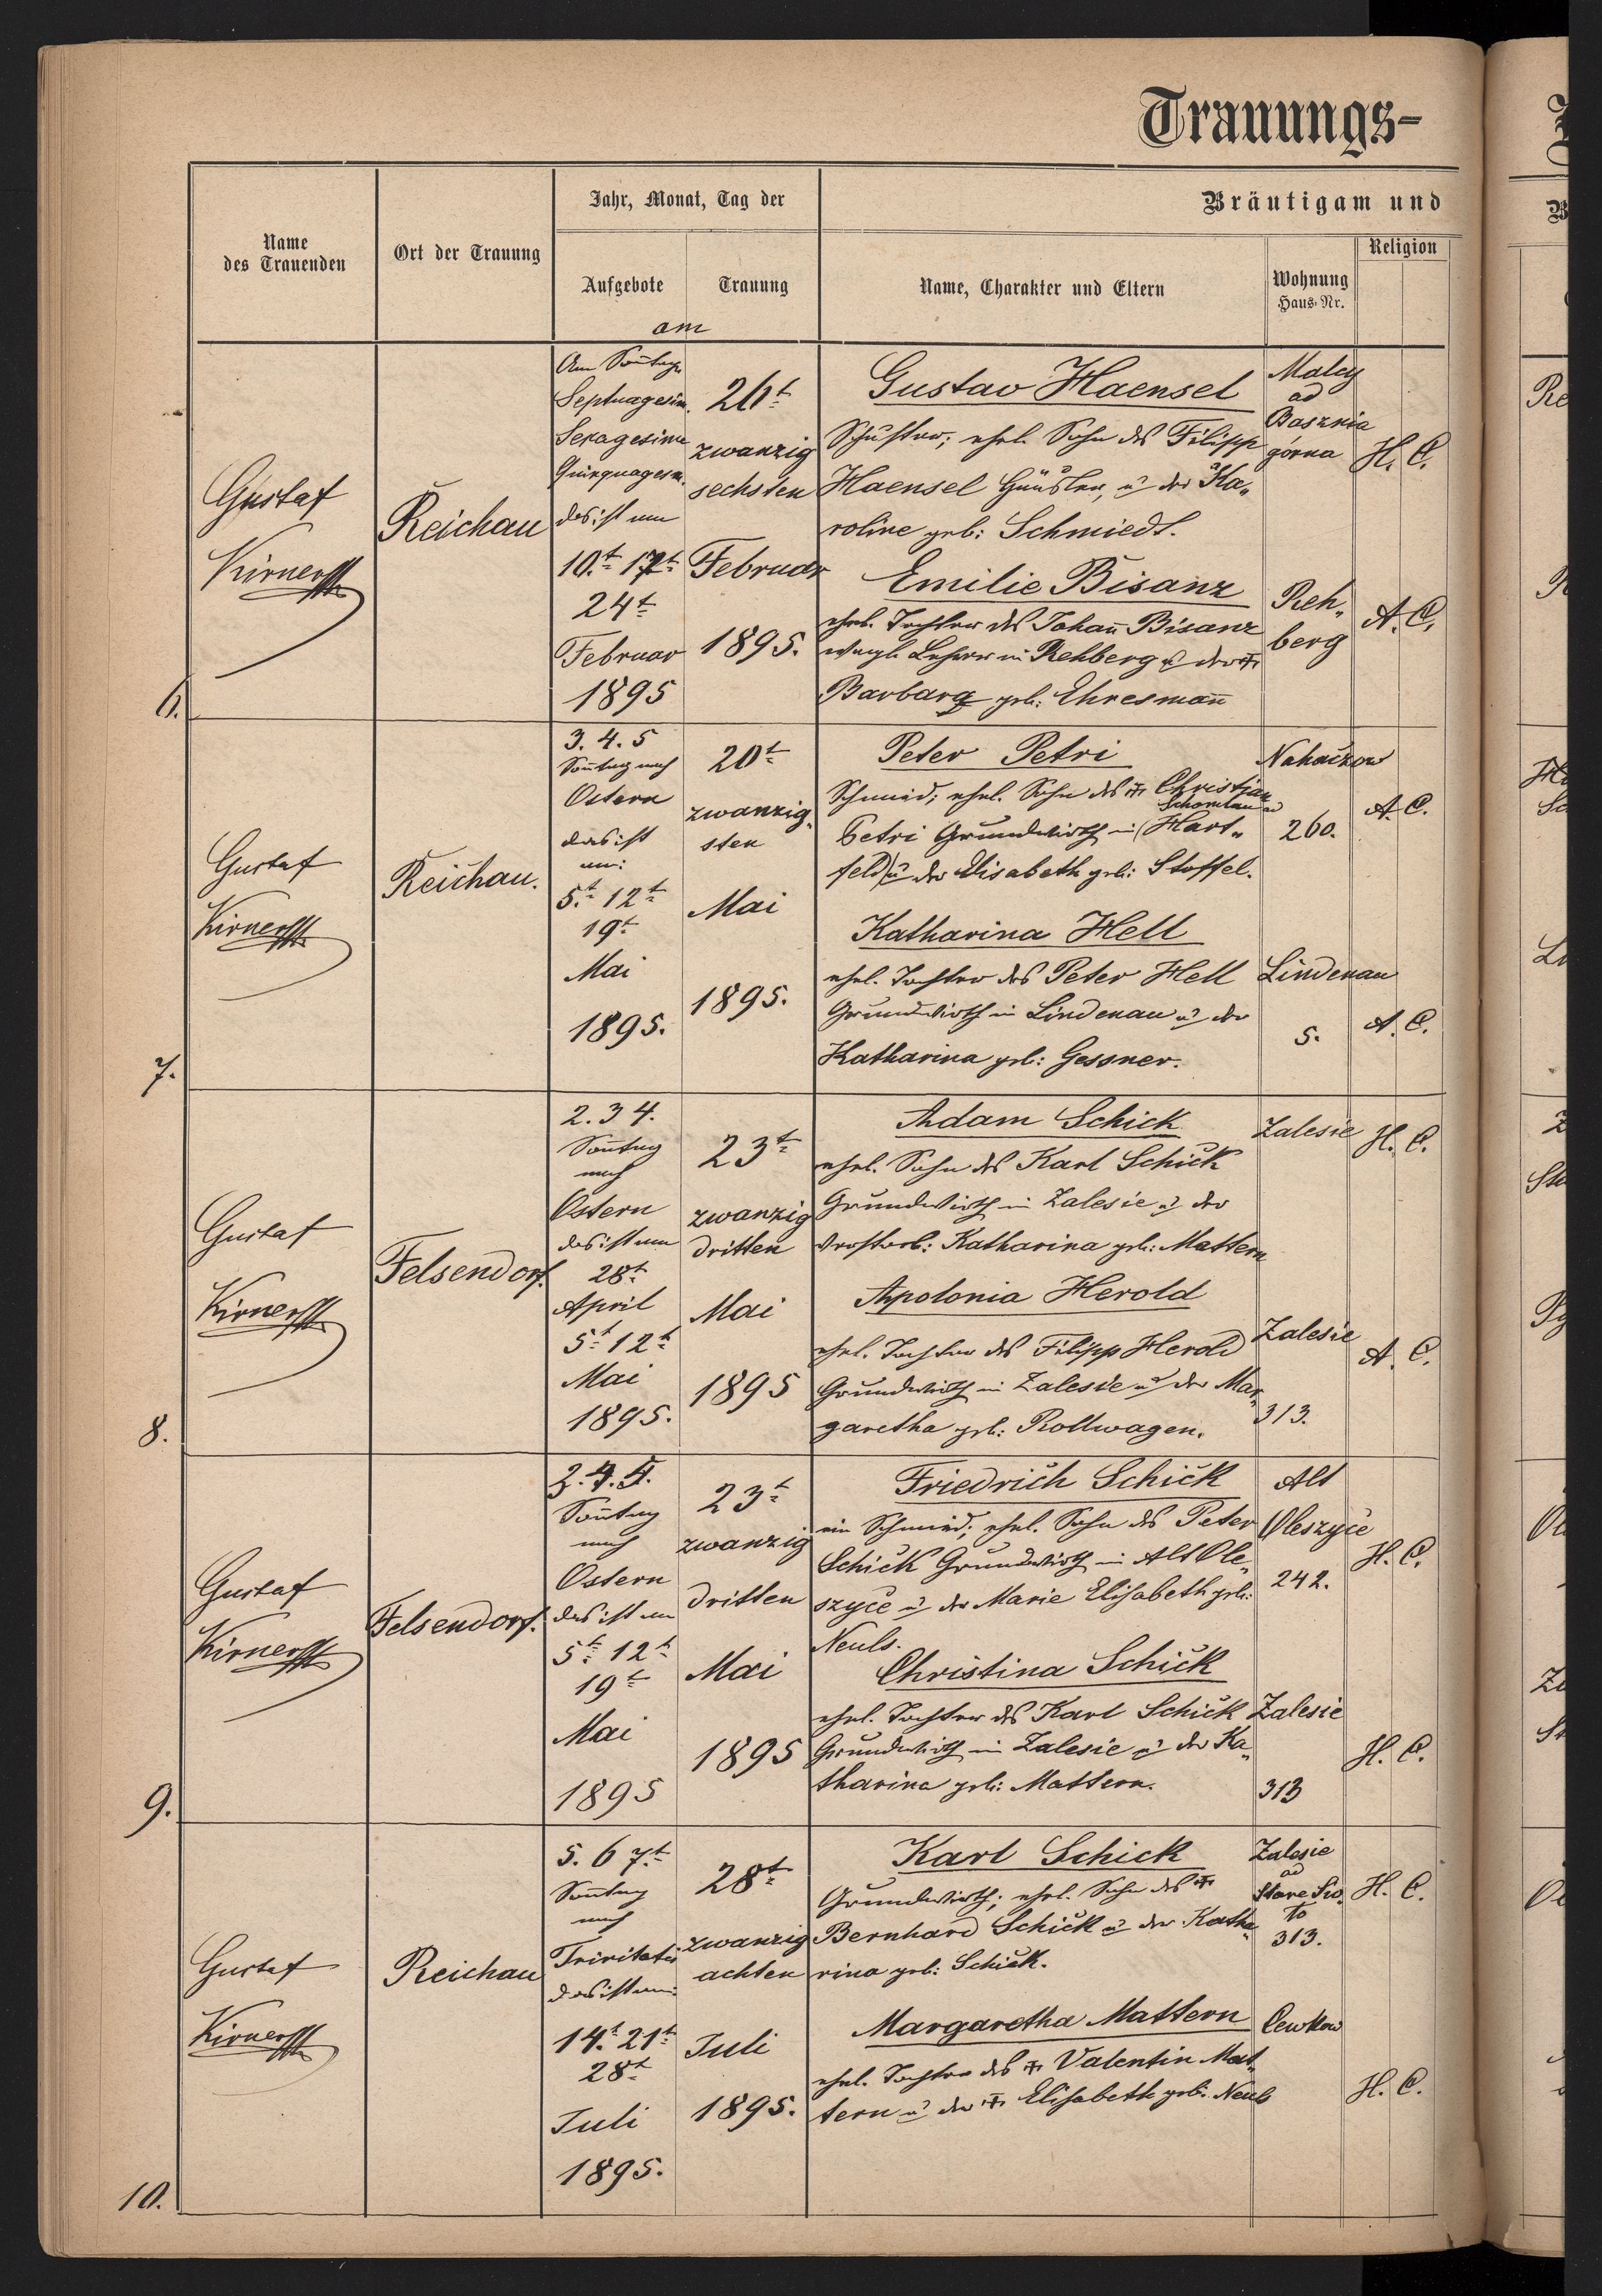 Trauungs-
Name
des Trauenden
Ort der Trauung
Jahr, Monat, Tag der
Aufgebote
Trauung
am
Bräutigam und
Name, Charakter und Eltern
Wohnung
Haus-Nr.
Religion
6.
Gustaf
Kirner
Reichau
Am Soñtage
Septuagesim.
Sexagesime
Quinquagesm.
das ist am
10.t 17t
24t
Februar
1895
26t
zwanzig
sechsten
Februar
1895.
Gustav Haensel
Schuster; ehel. Sohn des Filipp
Haensel Häusler, u der Ka„
roline geb: Schmiedt.
Malcy
ad
Basznia
górna
H. C.
Emilie Bisanz
ehel. Tochter des Johañ Bisanz
Lehrer in Rehberg u der
Barbara geb: Ehresmañ
Reh„
berg
A. C.
7.
Gustaf
Kirner
Reichau.
3. 4. 5
Soñtag nach
Ostern
das ist
am:
5.t 12t
19t
Mai
1895.
20t
zwanzig„
sten
Mai
1895.
Peter Petri
Schmied; ehel. Sohn des Christian
Petri Grundwirth in (Hart„
feld) u der Elisabeth geb: Stoffel.
Nahaczow
260.
A. C.
Katharina Hell
ehel. Tochter des Peter Hell
Grundwirth in Lindenau u der
Katharina geb: Gessner.
Lindenau
5.
A. C.
8.
Gustaf
Kirner
Felsendorf.
2. 3 4.
Soñtag
nach
Ostern
das ist am
28t
April
5t 12t
Mai
1895.
23t
zwanzig
dritten
Mai
1895
Adam Schick
ehel. Sohn des Karl Schick
Grundwirth in Zalesie u der
verstorb: Katharina geb: Mattern
Zalesie
H. C.
Apolonia Herold
ehel. Tochter des Filipp Herold
Grundwirth in Zalesie u der Mar„
garetha geb: Rollwagen.
Zalesie
313.
A. C.
9.
Gustaf
Kirner
Felsendorf.
Soñtag
nach
Ostern
das ist am
5t 12t
19t
Mai
1895
23t
zwanzig
dritten
Mai
1895
Friedrich Schick
ein Schmied; ehel. Sohn des Peter
Schick Grundwirth in Alt Ole„
szyce u der Marie Elisabeth geb:
Neuls.
Alt
Oleszyce
242.
H. C.
Christina Schick
ehel. Tochter des Karl Schick
Grundwirth in Zalesie u der Ka„
tharina geb: Mattern.
Zalesie
313
H. C.
10.
Gustaf
Kirner
Reichau
5. 6 7.t
Soñtag
nach
Trinitatis
das ist am:
14.t 21t
28t
Juli
1895.
28t
zwanzig
achten
Juli
1895.
Karl Schick
Grundwirth; ehel. Sohn des
Bernhard Schick u der Katha„
rina geb: Schick.
Zalesie
ad
Stare Sio„
ło
313.
H. C.
Margaretha Mattern
ehel. Tochter des Valentin Mat„
tern u der Elisabeth geb: Neuls
Cewkow
H. C.